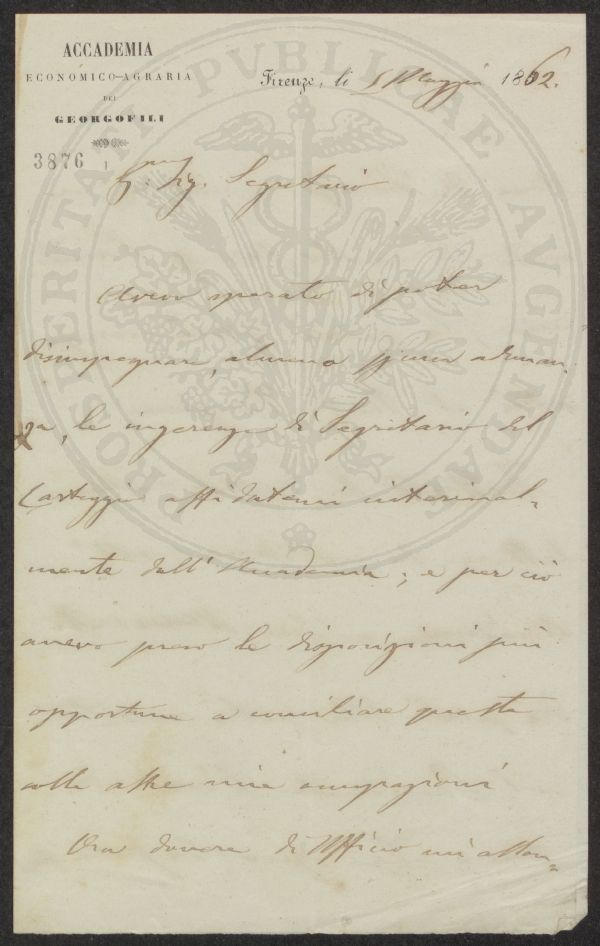 ACCADEMIA
ECONOMICO-AGRARIA
DEI
GEORGOFILI
Firenze, li 5 Maggio 1862.
3876 1
Sig. Segretario
Avevo sperato di poter
disimpegnare, almeno adunan-
za, le ingerenze di Segretario del
Carteggio affidatemi interinal-
mente dall'Accademia; e per ciò
avevo preso le disposizioni più
opportune a conciliare queste
colle altre mie occupazioni
Ora dovere di Ufficio mi allon-
PROSPERITATI PVBLICAE AVGENDAE